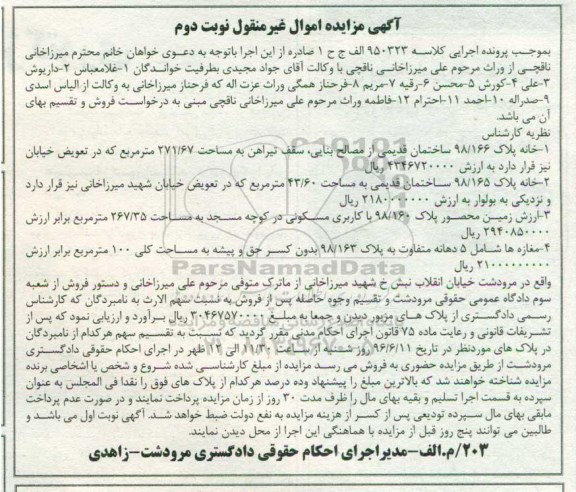 آگهی مزایده اموال غیرمنقول نوبت دوم
بموجب پرونده اجرایی کلاسه ۹۵۰۳۲۳ الف ج ح ۱ صادره از این اجرا باتوجه به دعوی خواهان خانم محترم میرزاخانی
ناقچی از وراث مرحوم علی میرزاخانی ناقچی با وکالت آقای جواد مجیدی بطرفیت خواندگان ۱-غلامعباس ۲-داریوش
۳-علی ۴-کورش ۵-محسن ۶-رقیه ۷-مریم ۸-فرحناز همگی وراث عزت اله که فرحناز میرزاخانی به وکالت از الیاس اسدی
۹-صدراله ۱۰-احمد ۱۱-احترام ۱۲-فاطمه وراث مرحوم علی میرزاخانی ناقچی مبنی به درخواست فروش و تقسیم بهای
آن می باشد.
نظریه کارشناس
۱-خانه پلاک ۹۸/۱۶۶ ساختمان قدیمی از مصالح بنایی، سقف تیرآهن به مساحت ۲۷۱/۶۷ مترمربع که در تعویض خیابان
نیز قرار دارد به ارزش ۴۳۴۶۷۲۰۰۰۰ ریال
۲-خانه پلاک ۹۸/۱۶۵ ساختمان قدیمی به مساحت ۴۳/۶۰ مترمربع که در تعویض خیابان شهید میرزاخانی نیز قرار دارد
و نزدیکی به بولوار به ارزش ۲۱۸۰۰۰۰۰۰۰ ریال
۳-ارزش زمین محصور پلاک ۹۸/۱۶۰ با کاربری مسکونی در کوچه مسجد به مساحت ۲۶۷/۳۵ مترمربع برابر ارزش
۲۹۴۰۸۵۰۰۰۰ ریال
۴-مغازه ها شامل ۵ دهانه متفاوت به پلاک ۹۸/۱۶۳ بدون کسر حق و پیشه به مساحت کلی ۱۰۰ مترمربع برابر ارزش
۲۱۰۰۰۰۰۰۰۰۰ ریال
واقع در مرودشت خیابان انقلاب نبش خ شهید میرزاخانی از ماترک متوفی مرحوم علی میرزاخانی و دستور فروش از شعبه
سوم دادگاه عمومی حقوقی مرودشت و تقسیم وجوه حاصله پس از فروش به نسبت سهم الارث به نامبردگان که کارشناس
رسمی دادگستری از پلاک های مزبور دیدن و جمعا به مبلغ ۳۰۴۶۷۵۷۰۰۰۰ ریال برآورد و ارزیابی نمود که پس از
تشریفات قانونی و رعایت ماده ۷۵ قانون اجرای احکام مدنی مقرر گردید که نسبت به تقسیم سهم هرکدام از نامبردگان
در پلاک های موردنظر در تاریخ ۹۶/۶/۱۱ روز شنبه از ساعت ۱۱/۳۰ الی ۱۲ ظهر در اجرای احکام حقوقی دادگستری
مرودشت از طریق مزایده حضوری به فروش می رسد مزایده از مبلغ کارشناسی شده شروع و شخص یا اشخاصی برنده
مزایده شناخته خواهند شد که بالاترین مبلغ را پیشنهاد وده درصد هرکدام از پلاک های فوق را نقدا فی المجلس به عنوان
سپرده به قسمت اجرا تسلیم و بقیه بهای مال را ظرف مدت ۳۰ روز از زمان مزایده پرداخت نمایند و در صورت عدم پرداخت
مابقی بهای مال سپرده تودیعی پس از کسر از هزینه مزایده به نفع دولت ضبط خواهد شد. آگهی نوبت اول می باشد و
طالبین می توانند پنج روز قبل از مزایده با هماهنگی این اجرا از محل دیدن نمایند.
۲۰۳/م.الف-مدیراجرای احکام حقوقی دادگستری مرودشت-زاهدی
ParsNamadData